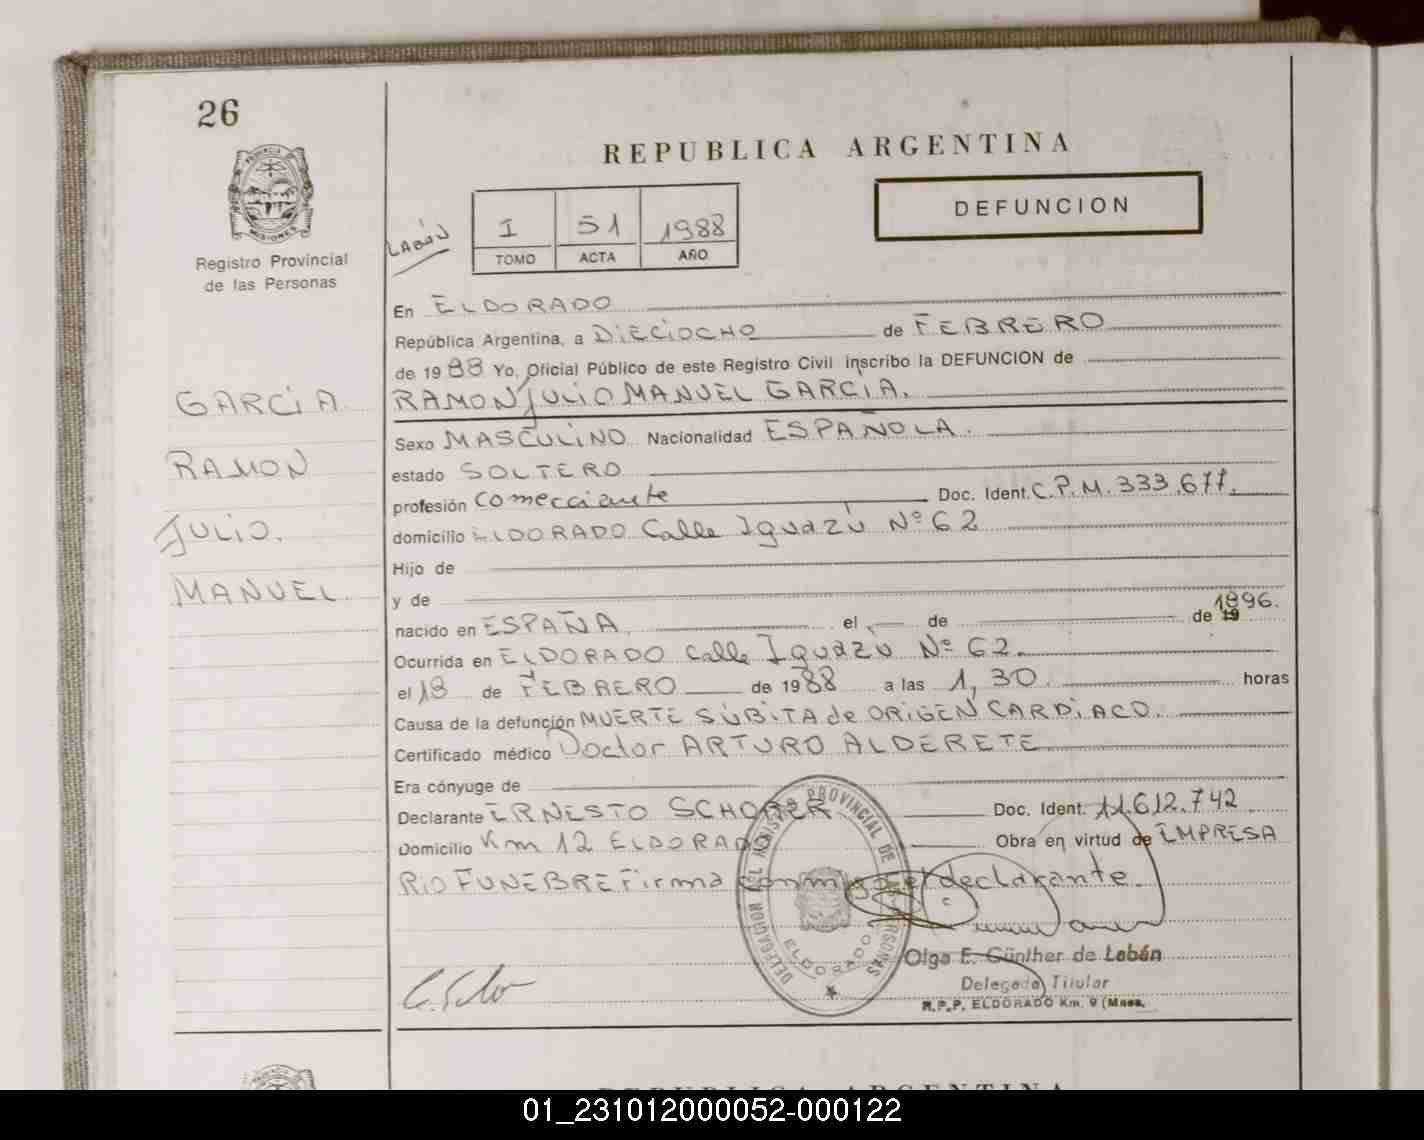 26
REPUBLICA ARGENTINA
PROVINCIA
MISIONES
Registro Provincial
de las Personas
LABÁN
I 51 1988
TOMO ACTA AÑO
DEFUNCION
En ELDORADO
República Argentina, a DIECIOCHO de FEBRERO
de 1988 Yo, Oficial Público de este Registro Civil inscribo la DEFUNCION de
GARCIA.
RAMON JULIO MANUEL GARCIA.
Sexo MASCULINO Nacionalidad ESPAÑOLA.
RAMON
estado SOLTERO
profesión Comerciante Doc. Ident. C.P.M. 333.677.
JULIO.
domicilio ELDORADO Calle Iguazú Nº 62
Hijo de
MANUEL
y de
nacido en ESPAÑA. el de de 19 1896.
Ocurrida en ELDORADO Calle Iguazu Nº 62.
el 18 de FEBRERO de 1988 a las 1,30 horas
Causa de la defunción MUERTE SÚBITA de ORIGEN CARDIACO.
Certificado médico Doctor ARTURO ALDERETE
Era cónyuge de
Declarante ERNESTO Doc. Ident. 11.612.742
Domicilio Km 12 ELDORADO Obra en virtud de EMPRESA
RIO FUNEBRE Firma conmigo el declarante.
DELEGACION DEL REGISTRO PROVINCIAL DE LAS PERSONAS
ELDORADO
Olga E. Günther de Labán
Delegada Titular
R.P.P. ELDORADO Km. 9 (Mnes.
REPUBLICA ARGENTINA
01_231012000052-000122